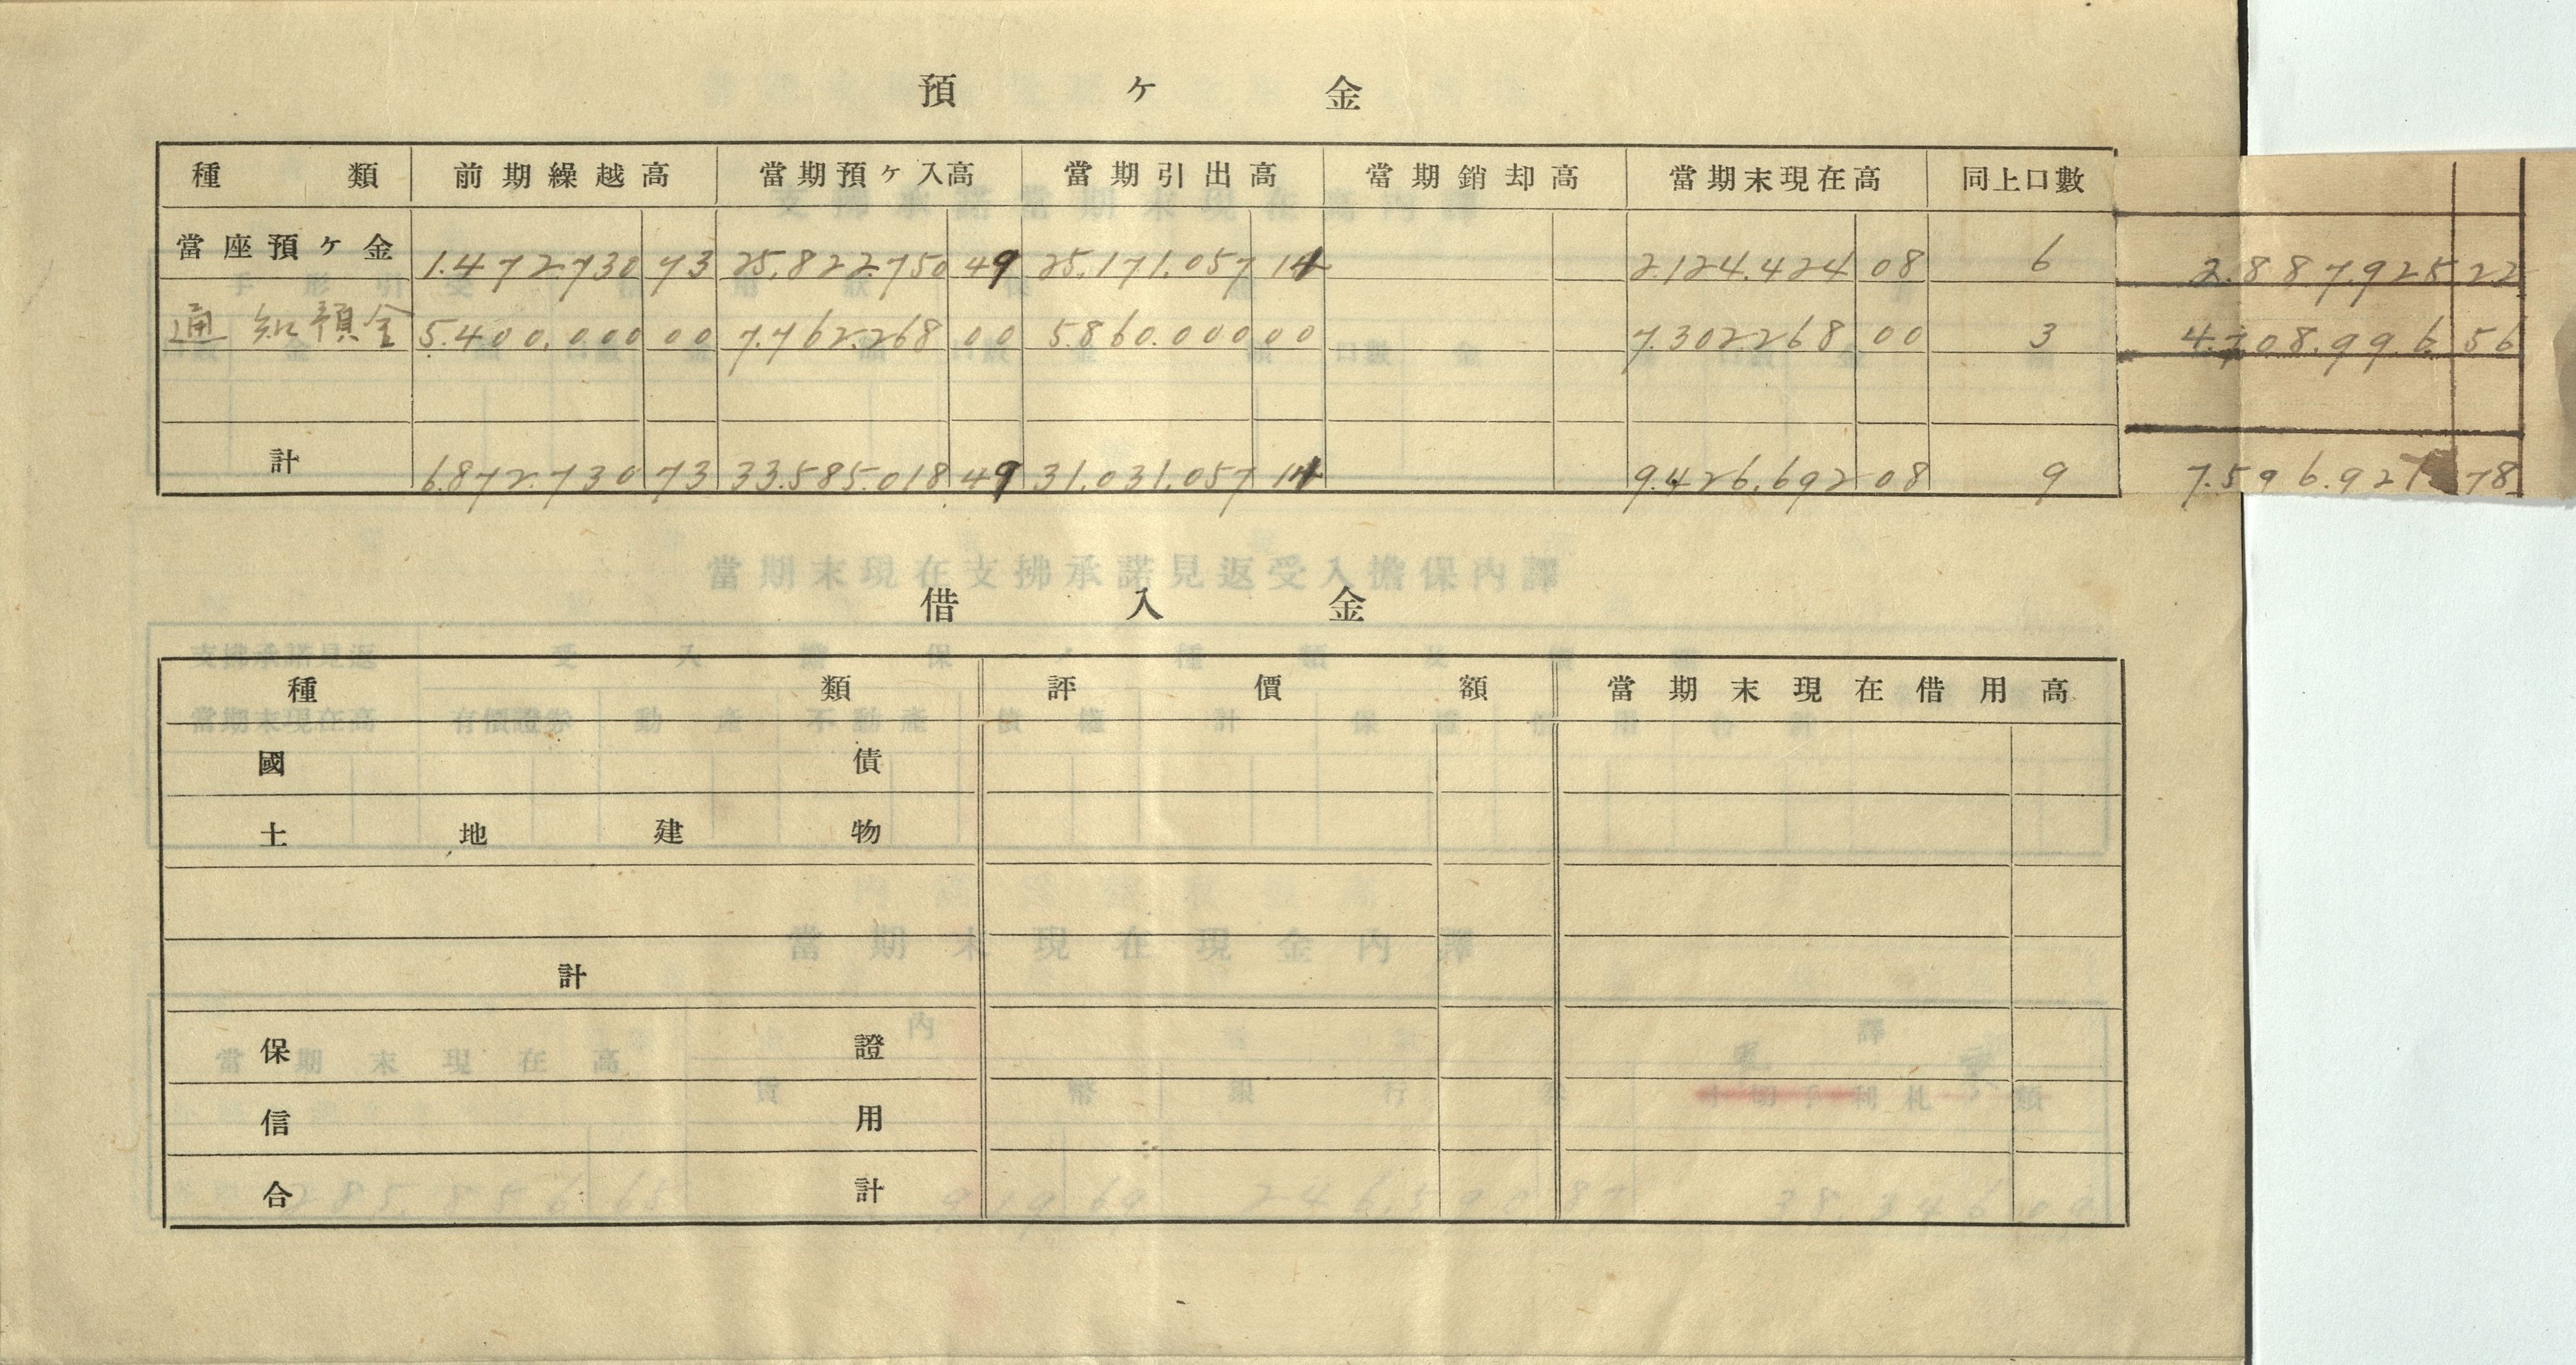 預ヶ金
種類 前期繰越高 當期預ヶ入高 當期引出高 當期銷却高 當期末現在高 同上口數
當座預ヶ金 1.472.730 73 25.822.750 49 25.171.057 14 2.124.424 08 6 2.887.925 22
通知預金 5.400.000 00 7.762.268 00 5.860.000 00 7.302.268 00 3 4.708.996 56
計 6.872.730 73 33.585.018 49 31.031.057 14 9.426.692 08 9 7.596.921 78
借入金
種類 評價額 當期末現在借用高
國債
土地建物
計
保證
信用
合計